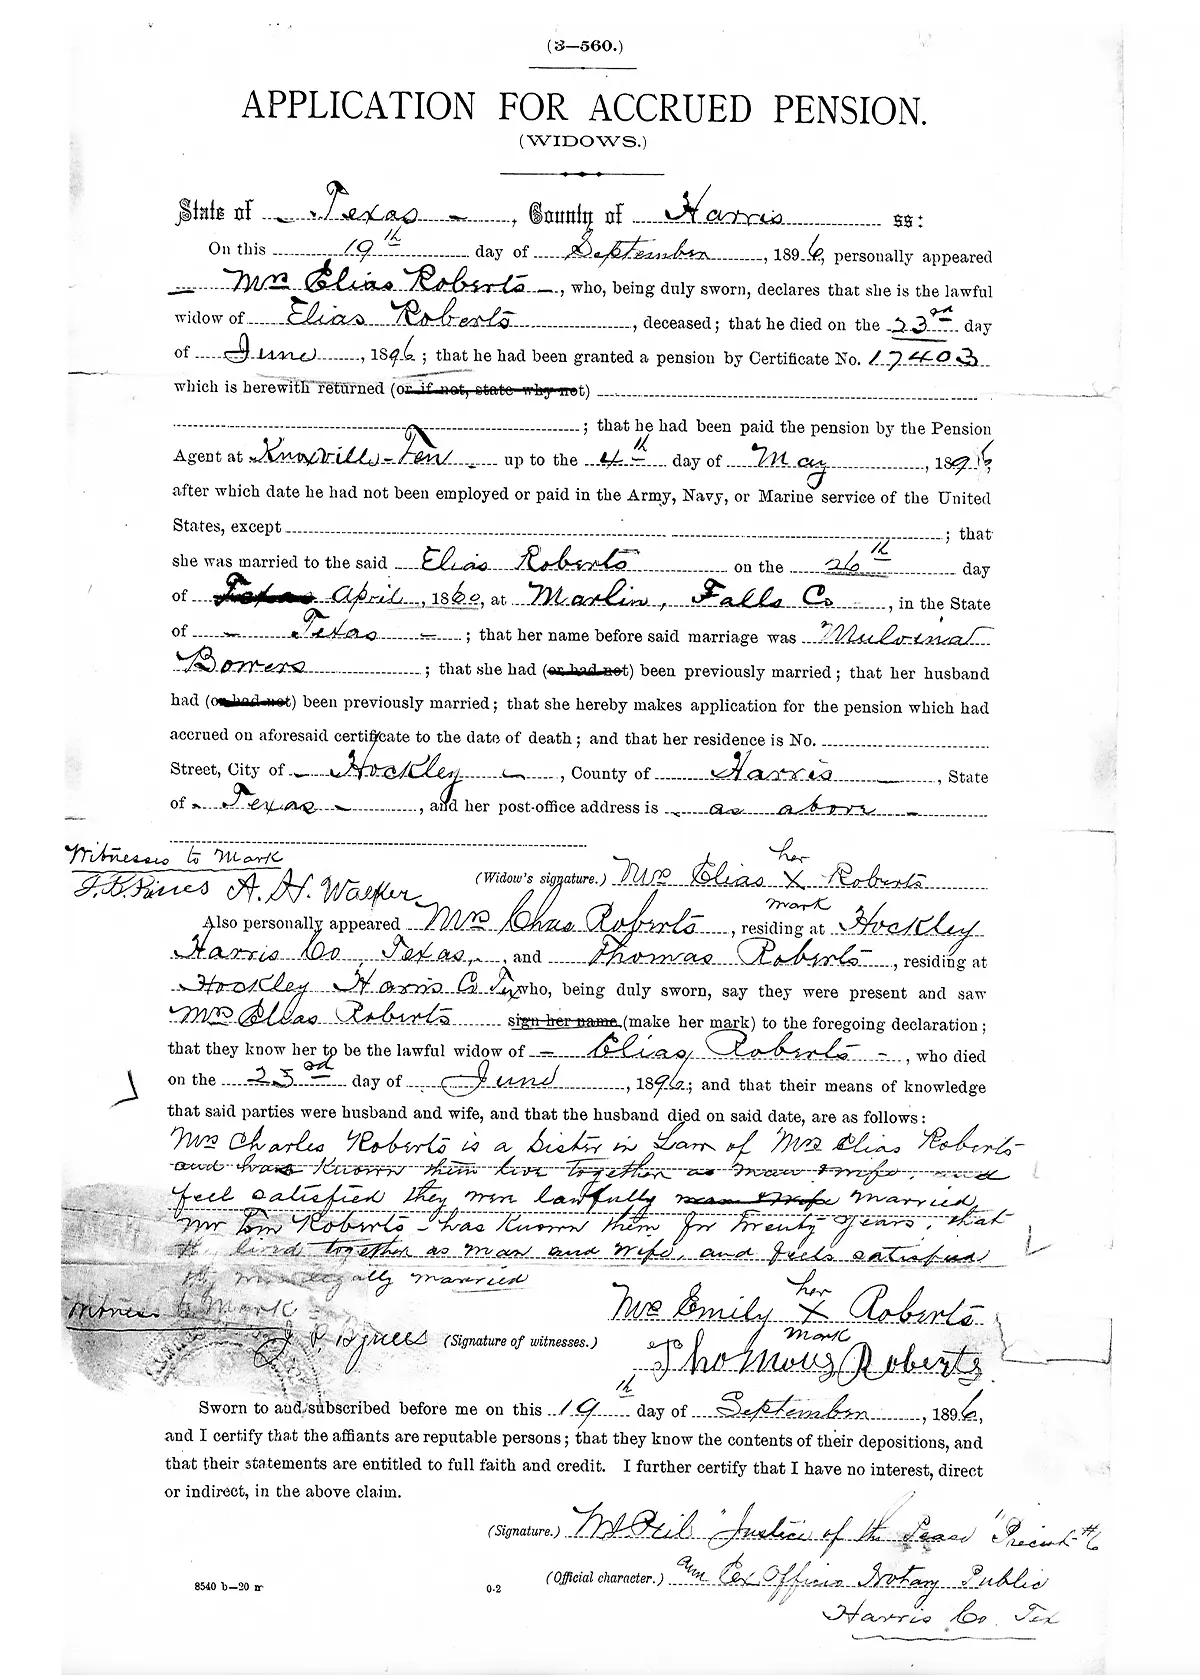 (3—560.)
APPLICATION FOR ACCRUED PENSION.
(WIDOWS.)
State of Texas, County of Harris ss:
On this 19th day of September, 1896, personally appeared
Mrs Elias Roberts, who, being duly sworn, declares that she is the lawful
widow of Elias Roberts, deceased; that he died on the 23rd day
of June, 1896; that he had been granted a pension by Certificate No. 17403
which is herewith returned (or if not, state why not)
; that he had been paid the pension by the Pension
Agent at Knoxville - Ten up to the 4th day of May, 1896
after which date he had not been employed or paid in the Army, Navy, or Marine service of the United
States, except ; that
she was married to the said Elias Roberts on the 26th day
of Texas April, 1860, at Marlin, Falls Co, in the State
of Texas; that her name before said marriage was Mulvina
Bowers; that she had (or had not) been previously married; that her husband
had (or had not) been previously married; that she hereby makes application for the pension which had
accrued on aforesaid certificate to the date of death; and that her residence is No.
Street, City of Hockley, County of Harris, State
of Texas, and her post-office address is as above
Witnesses to Mark
A. H. Walker
(Widow's signature.) Mrs Elias her X mark Roberts
Also personally appeared Mrs Chas Roberts, residing at Hockley
Harris Co, Texas, and Thomas Roberts, residing at
Hockley Harris Co Tex who, being duly sworn, say they were present and saw
Mrs Elias Roberts sign her name (make her mark) to the foregoing declaration;
that they know her to be the lawful widow of Elias Roberts, who died
on the 23rd day of June, 1896; and that their means of knowledge
that said parties were husband and wife, and that the husband died on said date, are as follows:
Mrs Charles Roberts is a Sister in Law of Mrs Elias Roberts
and has known them live together as man & wife, and
feel satisfied they were lawfully man & wife married
Mr Tom Roberts - has known them for Twenty years, that
lived together as man and wife, and feels satisfied
they were legally married
Witness to Mark
(Signature of witnesses.)
Mrs Emily her X mark Roberts
Thomous Roberts
Sworn to and subscribed before me on this 19th day of September, 1896,
and I certify that the affiants are reputable persons; that they know the contents of their depositions, and
that their statements are entitled to full faith and credit. I further certify that I have no interest, direct
or indirect, in the above claim.
(Signature.) "Justice of the Peace" Precinct #6
(Official character.) Ex Officio Notary Public
Harris Co Tex
8540 b—20 m
0-2